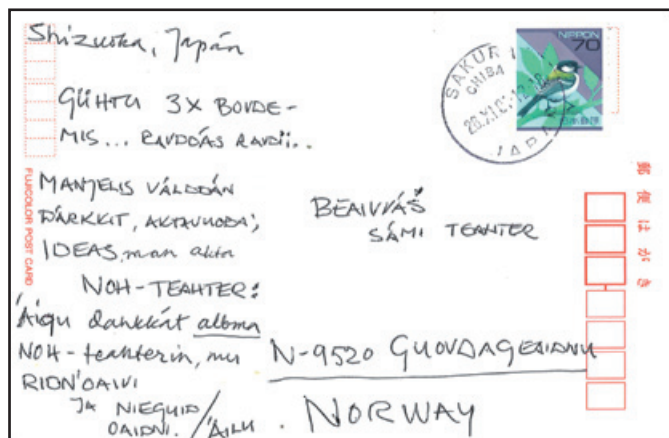 Shizuoka, Japán
GUHTU 3X BOVDE-
MIS... RAVDDÁS RAVDII..
MANJELIS VÁLDDÁN
DÁRKKIT, AKTAVUODA,
IDEAS, man akta
NOH-TEAHTER:
Áigu dahkkát albma
NOH-teahterin, mu
RION'OAIVI
JA NIEGUID
OAIDNI. / ÁILU.
NIPPON
70
SAKURA
CHIBA
JAPAN
BEAIVVÁŠ
SÁMI TEAHTER
N-9520 GUOVDAGEAIDNU
NORWAY
郵便はがき
FUJICOLOR POST CARD